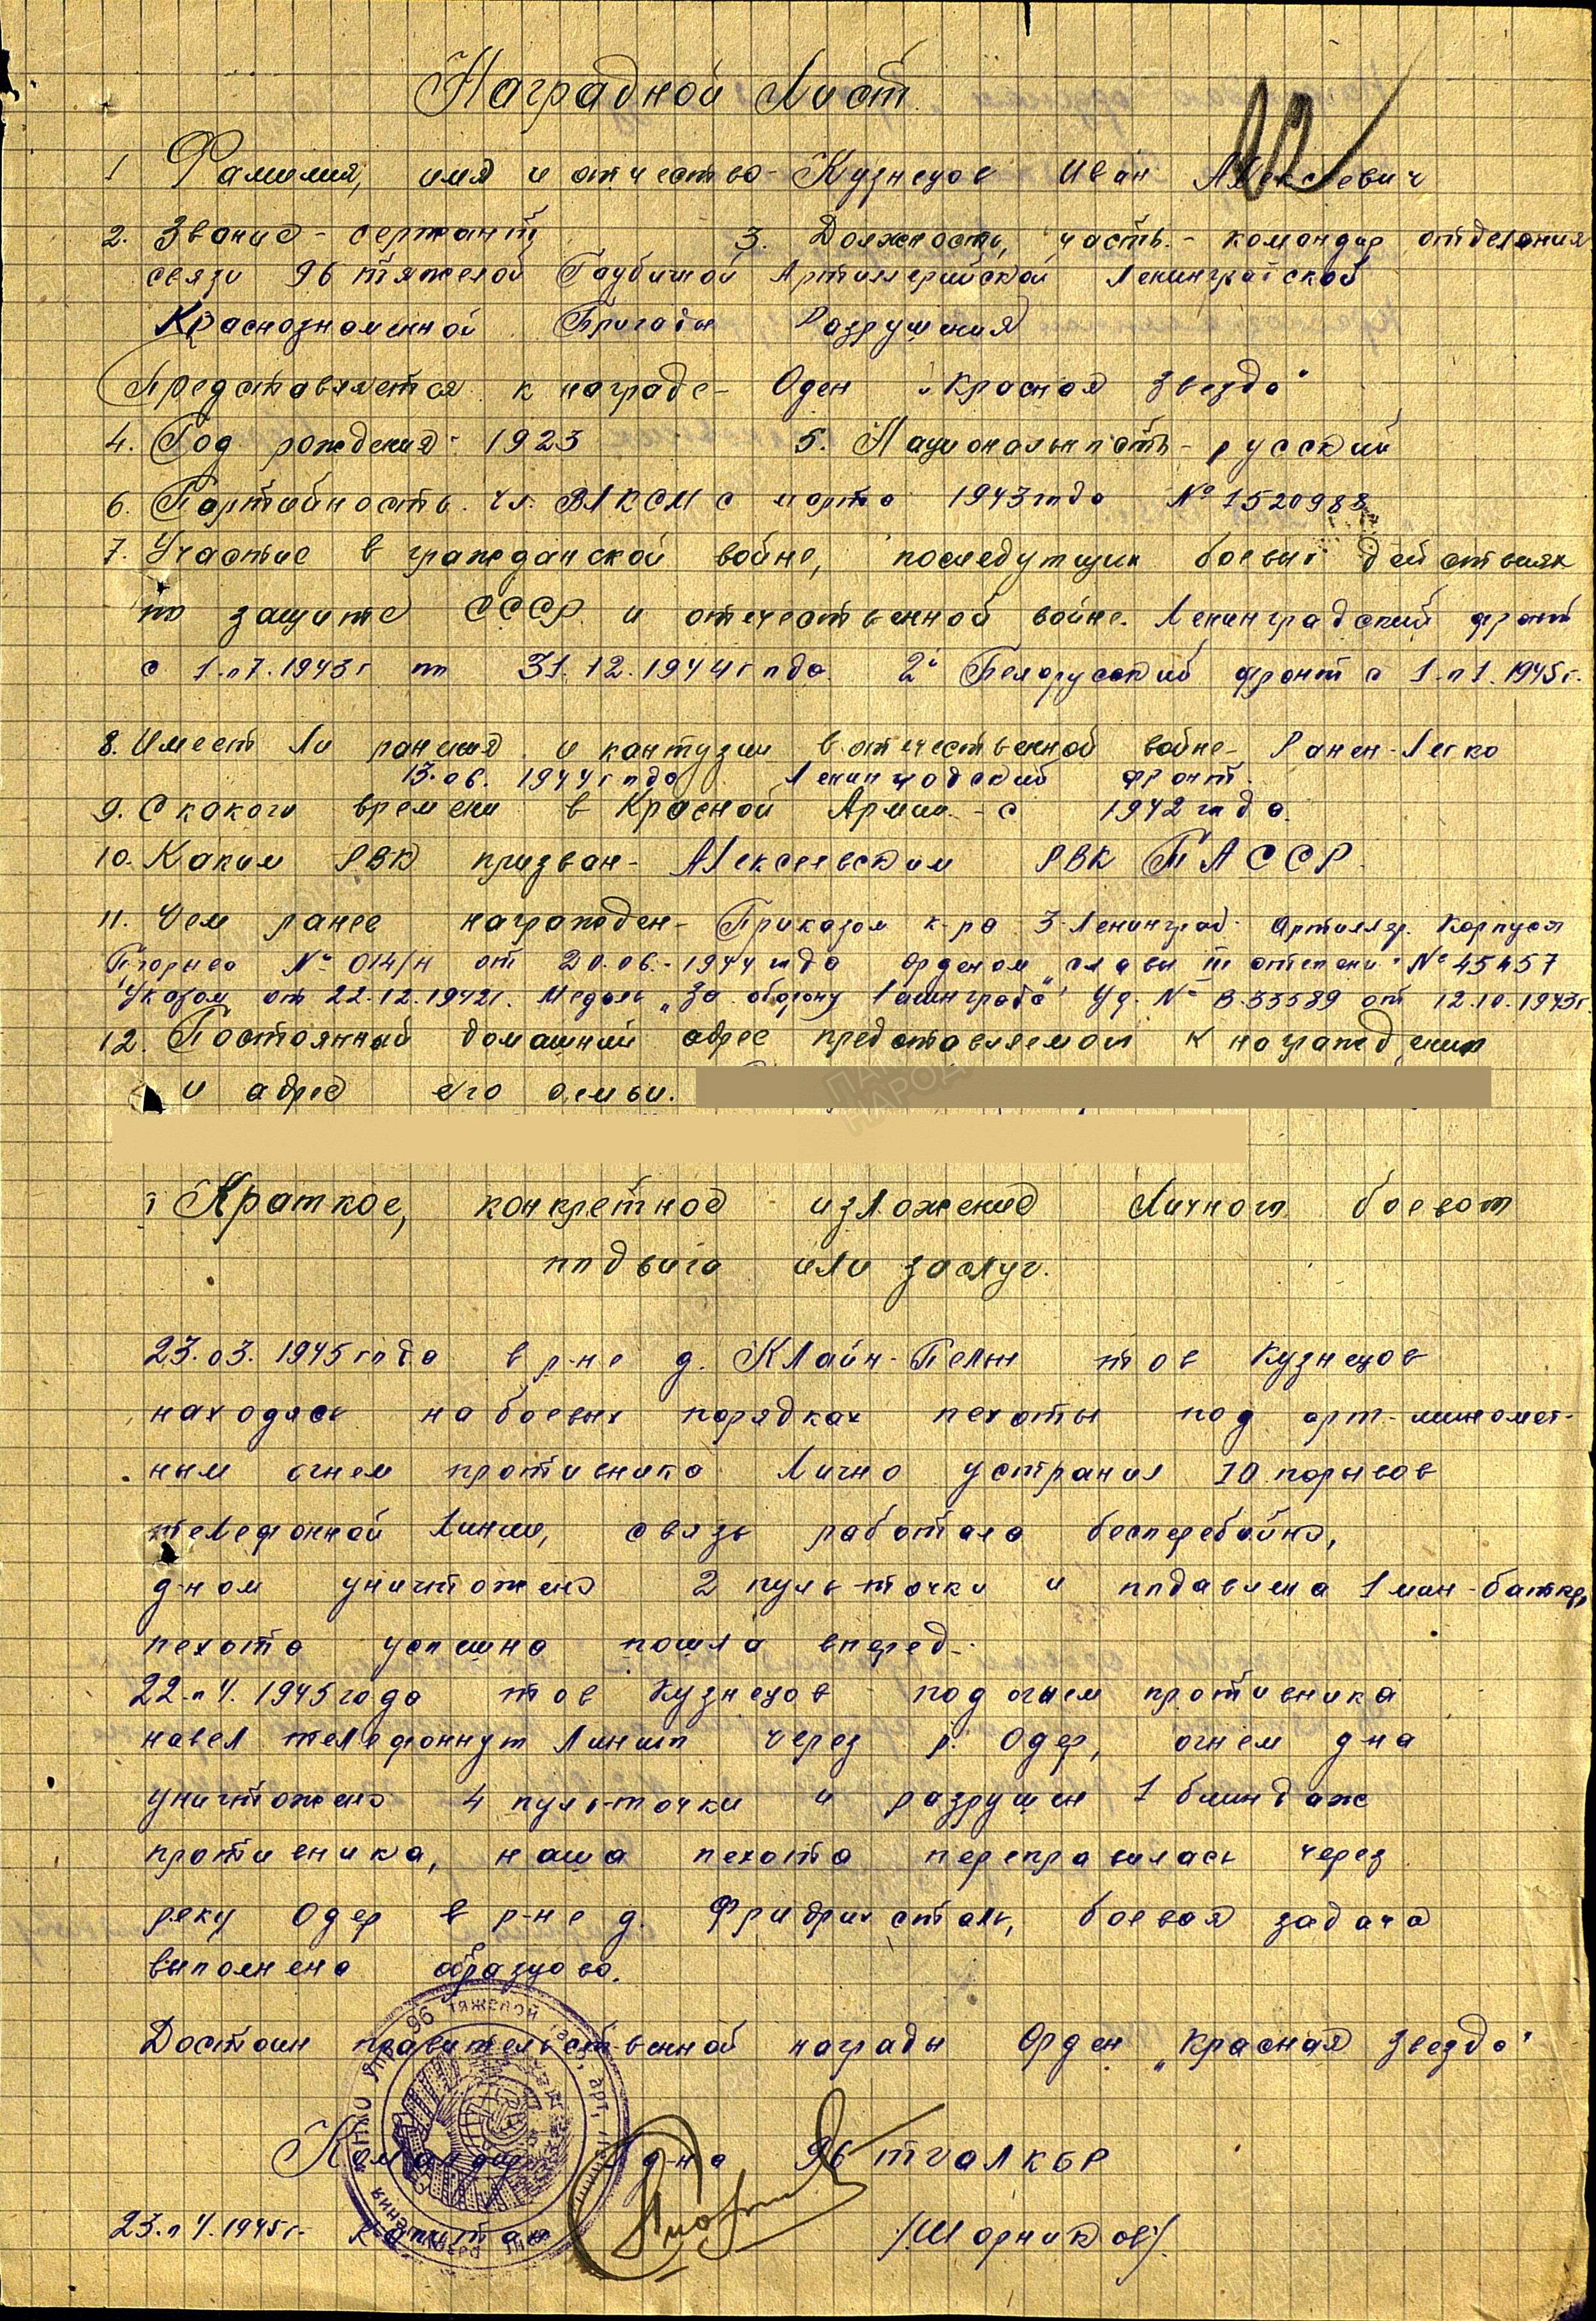 Наградной Лист
1 Фамилия, имя и отчество - Кузнецов Иван Алексеевич
2. Звание - сержант 3. Должность, часть. - командир отделения
связи 96 тяжелой Гаубичной Артиллерийской Ленинградской
Краснознаменной Бригады Разрушения
Представляется к награде - Оден „Красная Звезда"
4. Год рождения - 1923 5. Национальность - русский
6. Партийность. чл. ВЛКСМ с марта 1943 года № 1520988
7. Участие в гражданской войне, последующих боевых действиях
по защите СССР и отечественной войне. Ленинградский фронт
с 1.07.1943г по 31.12.1944 года. 2й Белорусский фронт с 1.01.1945г.
8. Имеет ли ранения и контузии в отечественной войне - Ранен - Легко
13.06.1944 года Ленинградский фронт.
9. С какого времени в Красной Армии. - с 1942 года.
10. Каким РВК призван - Алексеевским РВК ТАССР.
11. Чем ранее награжден - Приказом к-ра 3 Ленинград. Артиллер. Корпуса
Прорыва № 014/н от 20.06.-1944 года орденом „Славы III степени" № 45457
Указом от 22.12.1942г. Медаль „За оборону Ленинграда" Уд. № В.33589 от 12.10.1943г.
12. Постоянный домашний адрес представляемого к награждению
и адрес его семьи.
Краткое, конкретное изложение личного боевого
подвига или заслуг.
23.03.1945 года в р-не д. Клайн-Кельн тов Кузнецов
находясь на боевых порядках пехоты под арт.-миномет-
ным огнем противника Лично устранил 10 порывов
телефонной Линии, связь работала бесперебойно,
д-ном уничтожено 2 пуль-точки и подавлена 1 мин-батар,
пехота успешно пошла вперед.
22.04.1945 года тов Кузнецов под огнем противника
навел телефонную Линию через р. Одер, огнем д-на
уничтожено 4 пуль-точки и разрушен 1 блиндаж
противника, наша пехота переправилась через
реку Одер в р-не д. Фридрихсталь, боевая задача
выполнена образцово.
Достоин правительственной награды Орден „Красная Звезда"
Командир д-на 96 тгалкбр
23.04.1945г. капитан /Шорников/.
96 тяжелой гауб. арт.